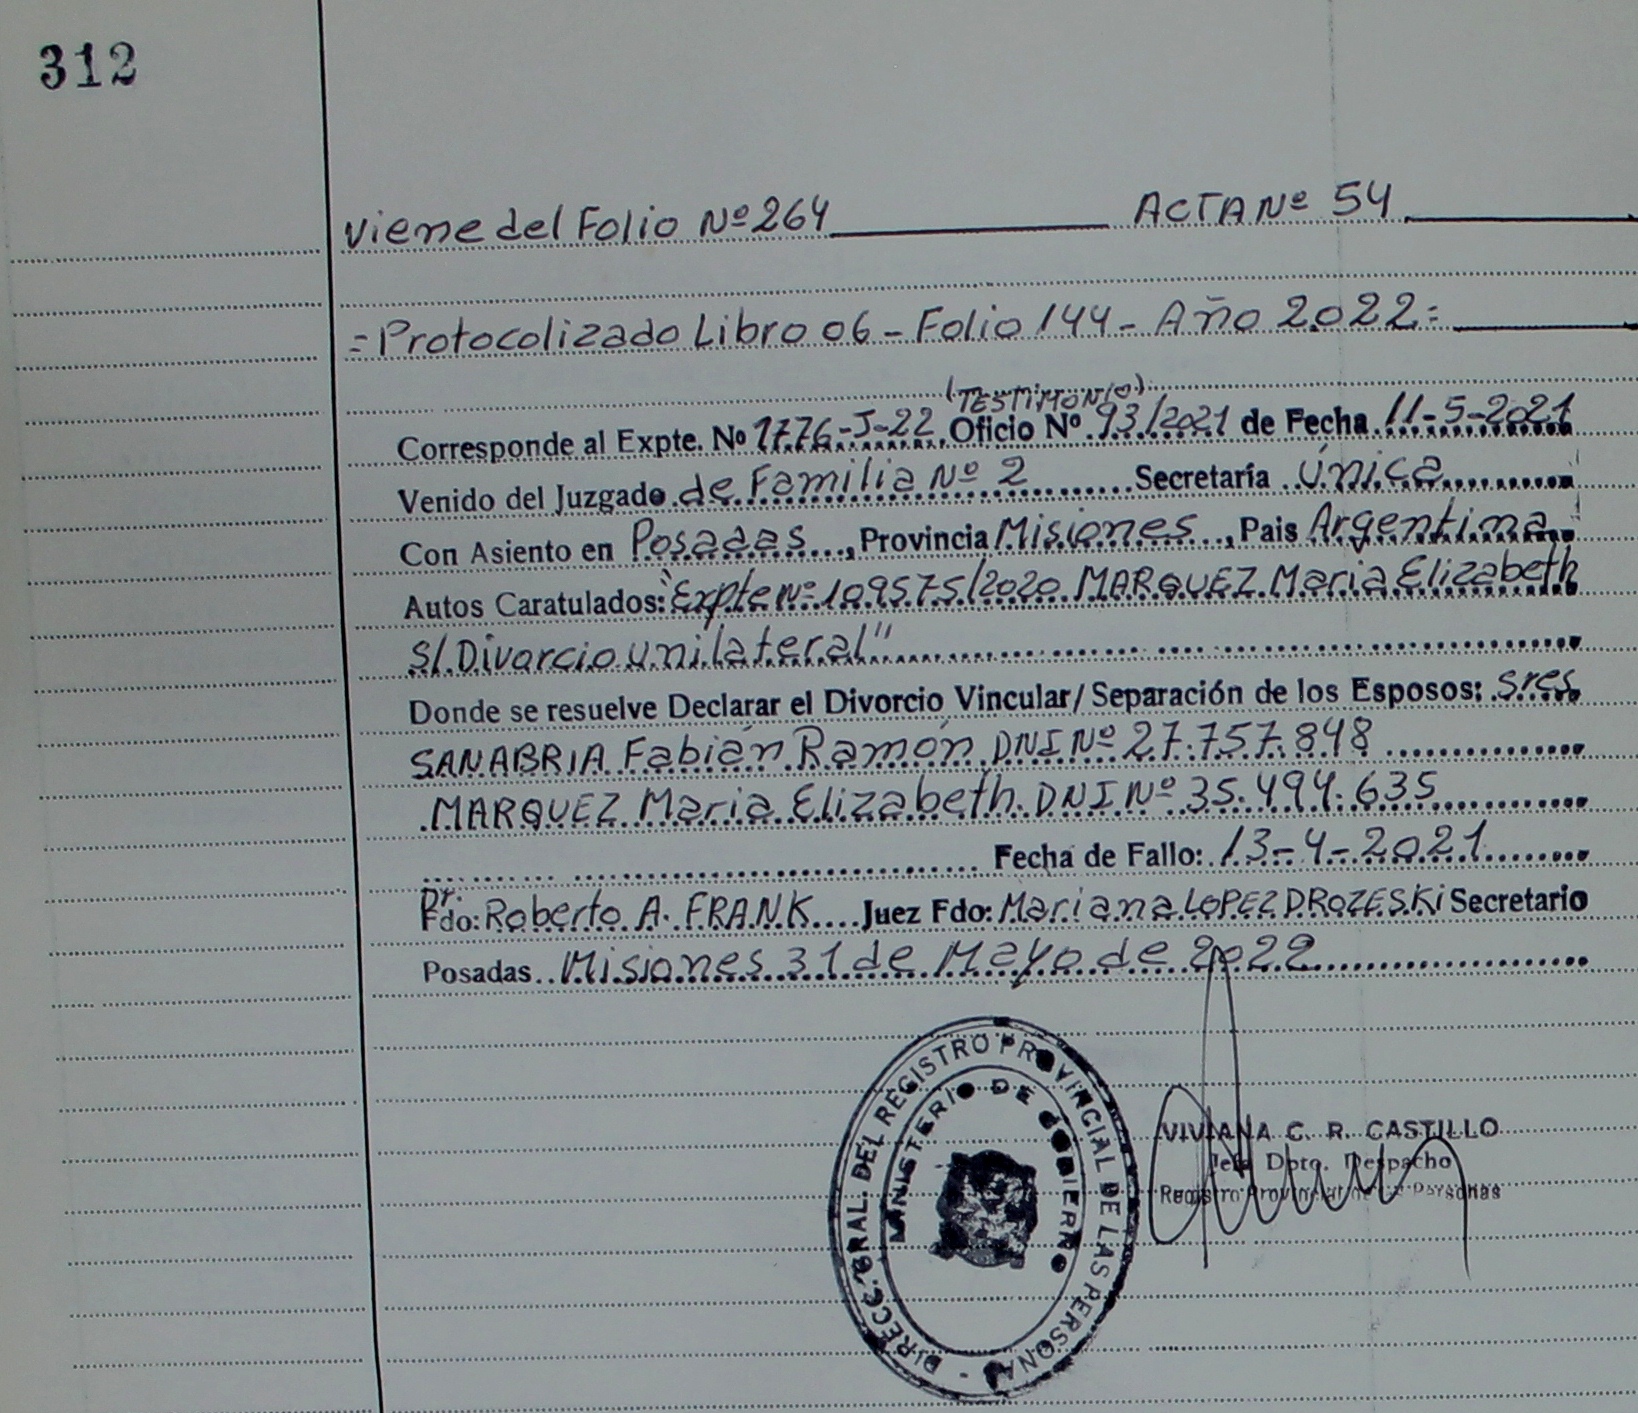 312
Viene del Folio Nº 264 ACTA Nº 54
= Protocolizado Libro 06 - Folio 144 - Año 2022 =
(TESTIMONIO)
Corresponde al Expte. Nº 1776-J-22 Oficio Nº 93/2021 de Fecha 11-5-2021
Venido del Juzgado de Familia Nº 2 Secretaría Única
Con Asiento en Posadas, Provincia Misiones, Pais Argentina
Autos Caratulados: "Expte Nº 109575/2020 MARQUEZ Maria Elizabeth
S/ Divorcio unilateral"
Donde se resuelve Declarar el Divorcio Vincular/Separación de los Esposos: Sres
SANABRIA Fabián Ramón DNI Nº 27.757.848
MARQUEZ Maria Elizabeth DNI Nº 35.494.635
Fecha de Fallo: 13-4-2021
Dr.
Fdo: Roberto A. FRANK Juez Fdo: Mariana LOPEZ DROZESKI Secretario
Posadas Misiones 31 de Mayo de 2022
DIRECC. GRAL. DEL REGISTRO PROVINCIAL DE LAS PERSONAS
MINISTERIO DE GOBIERNO
VIVIANA C. R. CASTILLO
Jefa Dpto. Despacho
Registro Provincial de las Personas